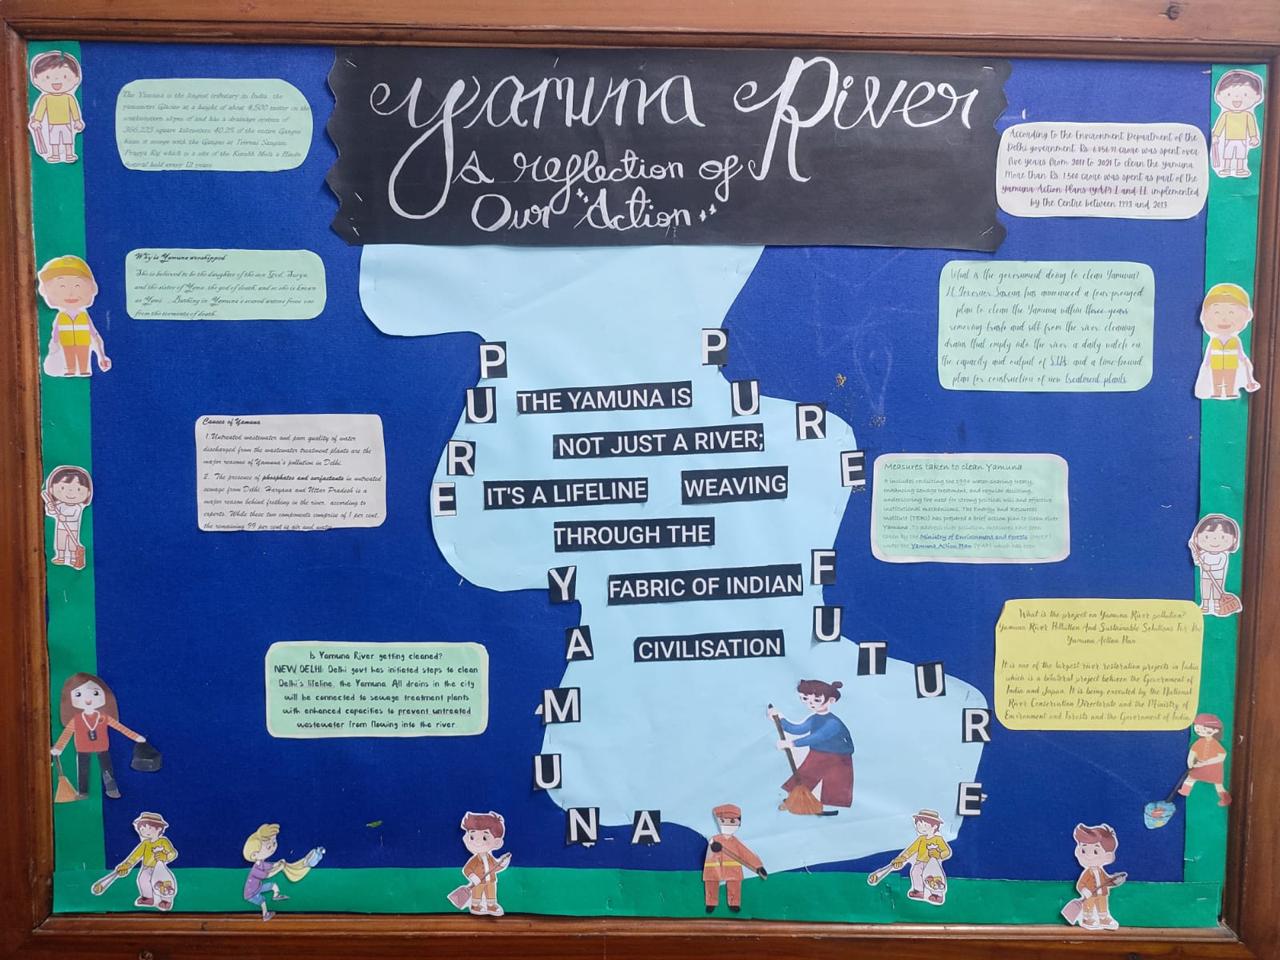 Yamuna River
A Reflection of
Our Action
The Yamuna is the longest tributary in India, the
yamunotri Glacier at a height of about 4,500 meter on the
southwestern slopes of and has a drainage system of
366,223 square kilometers 40.2% of the entire Ganges
Basin it merge with the Ganges at Triveni Sangam,
Prayag Raj which is a site of the Kumbh Mela a Hindu
festival held every 12 years
Why is Yamuna worshipped
She is believed to be the daughter of the sun God, Surya
and the sister of Yama, the god of death, and so she is known
as Yami. Bathing in Yamuna's sacred waters frees one
from the torments of death.
Causes of Yamuna
1. Untreated wastewater and poor quality of water
discharged from the wastewater treatment plants are the
major reasons of Yamuna's pollution in Delhi.
2. The presence of phosphates and surfactants in untreated
sewage from Delhi, Haryana and Uttar Pradesh is a
major reason behind frothing in the river, according to
experts. While these two components comprise of 1 per cent,
the remaining 99 per cent is air and water
Is Yamuna River getting cleaned?
NEW DELHI: Delhi govt has initiated steps to clean
Delhi's lifeline, the Yamuna. All drains in the city
will be connected to sewage treatment plants
with enhanced capacities to prevent untreated
wastewater from flowing into the river.
PURE
YAMUNA
PURE
FUTURE
THE YAMUNA IS
NOT JUST A RIVER;
IT'S A LIFELINE WEAVING
THROUGH THE
FABRIC OF INDIAN
CIVILISATION
According to the Environment Department of the
Delhi government, Rs crore was spent over
five years from 2017 to 2021 to clean the yamuna
More than Rs. 1,500 crore was spent as part of the
yamuna Action Plans (yAP) I and II implemented
by the Centre between 1993 and 2013
What is the government doing to clean Yamuna?
Lt Governor Saxena has announced a four-pronged
plan to clean the Yamuna within three years
removing trash and silt from the river, cleaning
drains that empty into the river a daily watch on
the capacity and output of and a time-bound
plan for construction of new treatment plants
Measures taken to clean Yamuna
It includes revisiting the 1994 water-sharing treaty,
enhancing sewage treatment, and regular desilting,
underscoring the need for strong political will and effective
institutional mechanisms. The Energy and Resources
Institute (TERI) has prepared a brief action plan to clean river
Yamuna. To address river pollution, measures have been
taken by the Ministry of Environment and Forests (MoEF)
under the Yamuna Action Plan (YAP) which has been
What is the project on Yamuna River pollution?
Yamuna River Pollution And Sustainable Solutions For The
Yamuna Action Plan
It is one of the largest river restoration projects in India
which is a bilateral project between the Government of
India and Japan. It is being executed by the National
River Conservation Directorate and the Ministry of
Environment and Forests and the Government of India